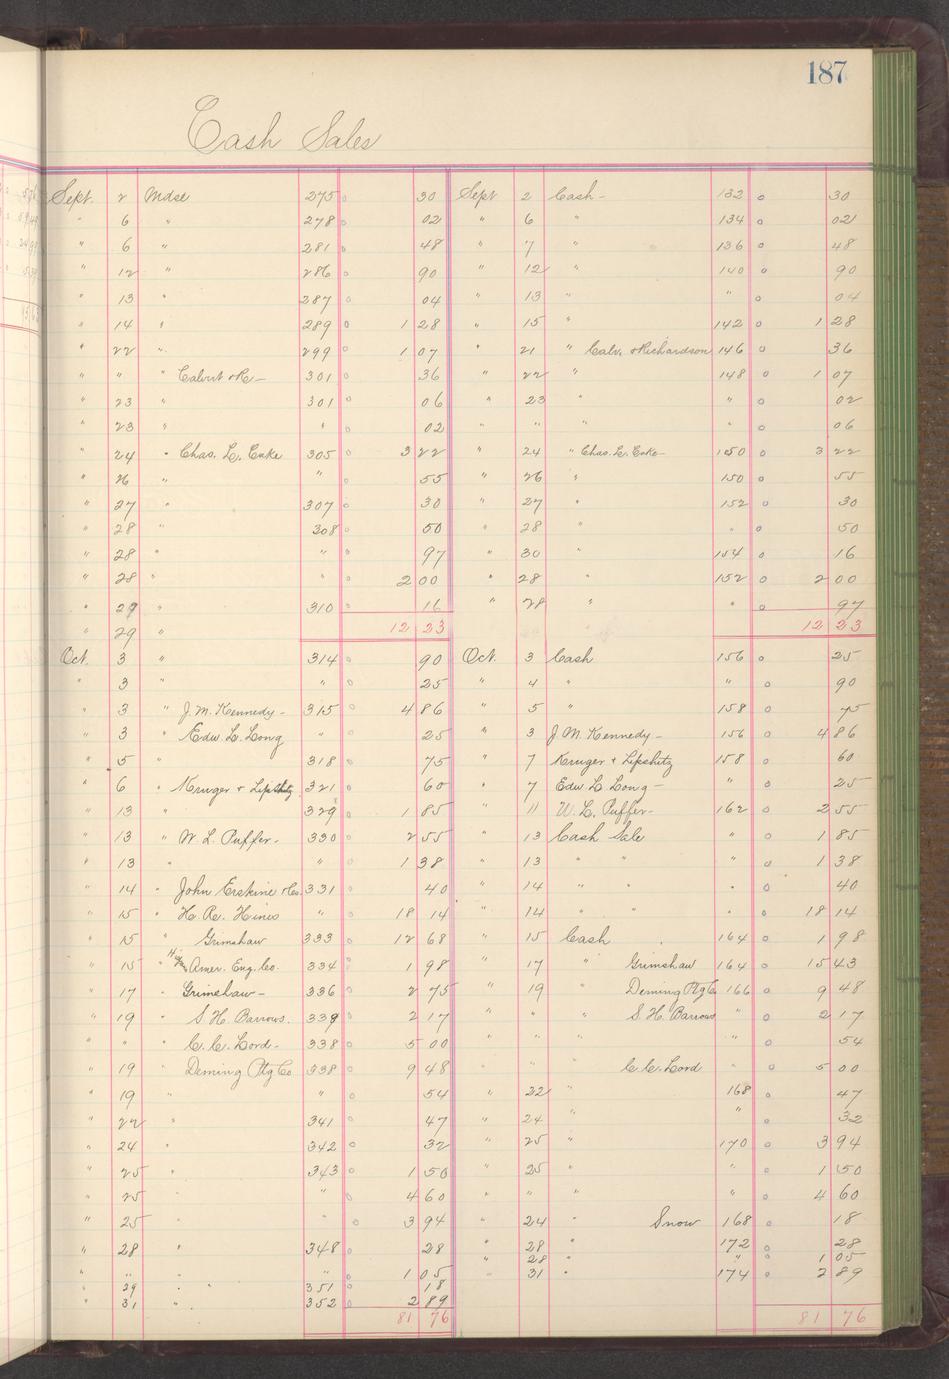 187
Cash Sales
Sept. 2 Mdse 275 30 Sept 2 Cash - 132 30
" 6 " 278 02 " 6 " 134 02
" 6 " 281 48 " 7 " 136 48
" 12 " 286 90 " 12 " 140 90
" 13 " 287 04 " 13 " " 04
" 14 " 289 1 28 " 15 " 142 1 28
" 22 " 299 1 07 " 21 " Calv. & Richardson 146 36
" " " Calvert & R - 301 36 " 22 " 148 1 07
" 23 " 301 06 " 23 " " 02
" 23 " " 02 " " " " 06
" 24 " Chas. L. Cake 305 3 22 " 24 " Chas. L. Cake - 150 3 22
" 26 " " 55 " 26 " 150 55
" 27 " 307 30 " 27 " 152 30
" 28 " 308 50 " 28 " " 50
" 28 " " 97 " 30 " 154 16
" 28 " " 2 00 " 28 " 152 2 00
" 29 " 310 16 " 28 " " 97
" 29 " 12 23 12 23
Oct. 3 " 314 90 Oct. 3 Cash 156 25
" 3 " " 25 " 4 " " 90
" 3 " J. M. Kennedy - 315 4 86 " 5 " 158 75
" 3 " Edw. L. Long " 25 " 3 J M. Kennedy - 156 4 86
" 5 " 318 75 " 7 Kruger & Lipshitz 158 60
" 6 " Kruger & Lipshitz 321 60 " 7 Edw L Long - " 25
" 13 " 329 1 85 " 11 W. L. Puffer - 162 2 55
" 13 " W. L. Puffer - 330 2 55 " 13 Cash Sale " 1 85
" 13 " " 1 38 " 13 " " " 1 38
" 14 " John Erskine & Co. 331 40 " 14 " " " 40
" 15 " H. R. Hines " 18 14 " 14 " " " 18 14
" 15 " Grimshaw 333 12 68 " 15 Cash 164 1 98
" 15 " Amer. Eng. Co. 334 1 98 " 17 " Grimshaw 164 15 43
" 17 " Grimshaw - 336 2 75 " 19 " Deming Ptg Co 166 9 48
" 19 " S. H. Barrows. 339 2 17 " " " S. H. Barrows " 2 17
" " " C. C. Lord - 338 5 00 " " " " 54
" 19 Deming Ptg Co 338 9 48 " " " C. C. Lord " 5 00
" 19 " " 54 " 22 " 168 47
" 22 " 341 47 " 24 " " 32
" 24 " 342 32 " 25 " 170 3 94
" 25 " 343 1 50 " 25 " " 1 50
" 25 " 4 60 " " " " 4 60
" 25 " " 3 94 " 24 " Snow 168 18
" 28 " 348 28 " 28 " 172 28
" " " " 1 05 " 28 " " 1 05
" 29 " 351 18 " 31 " 174 2 89
" 31 " 352 2 89
81 76 81 76